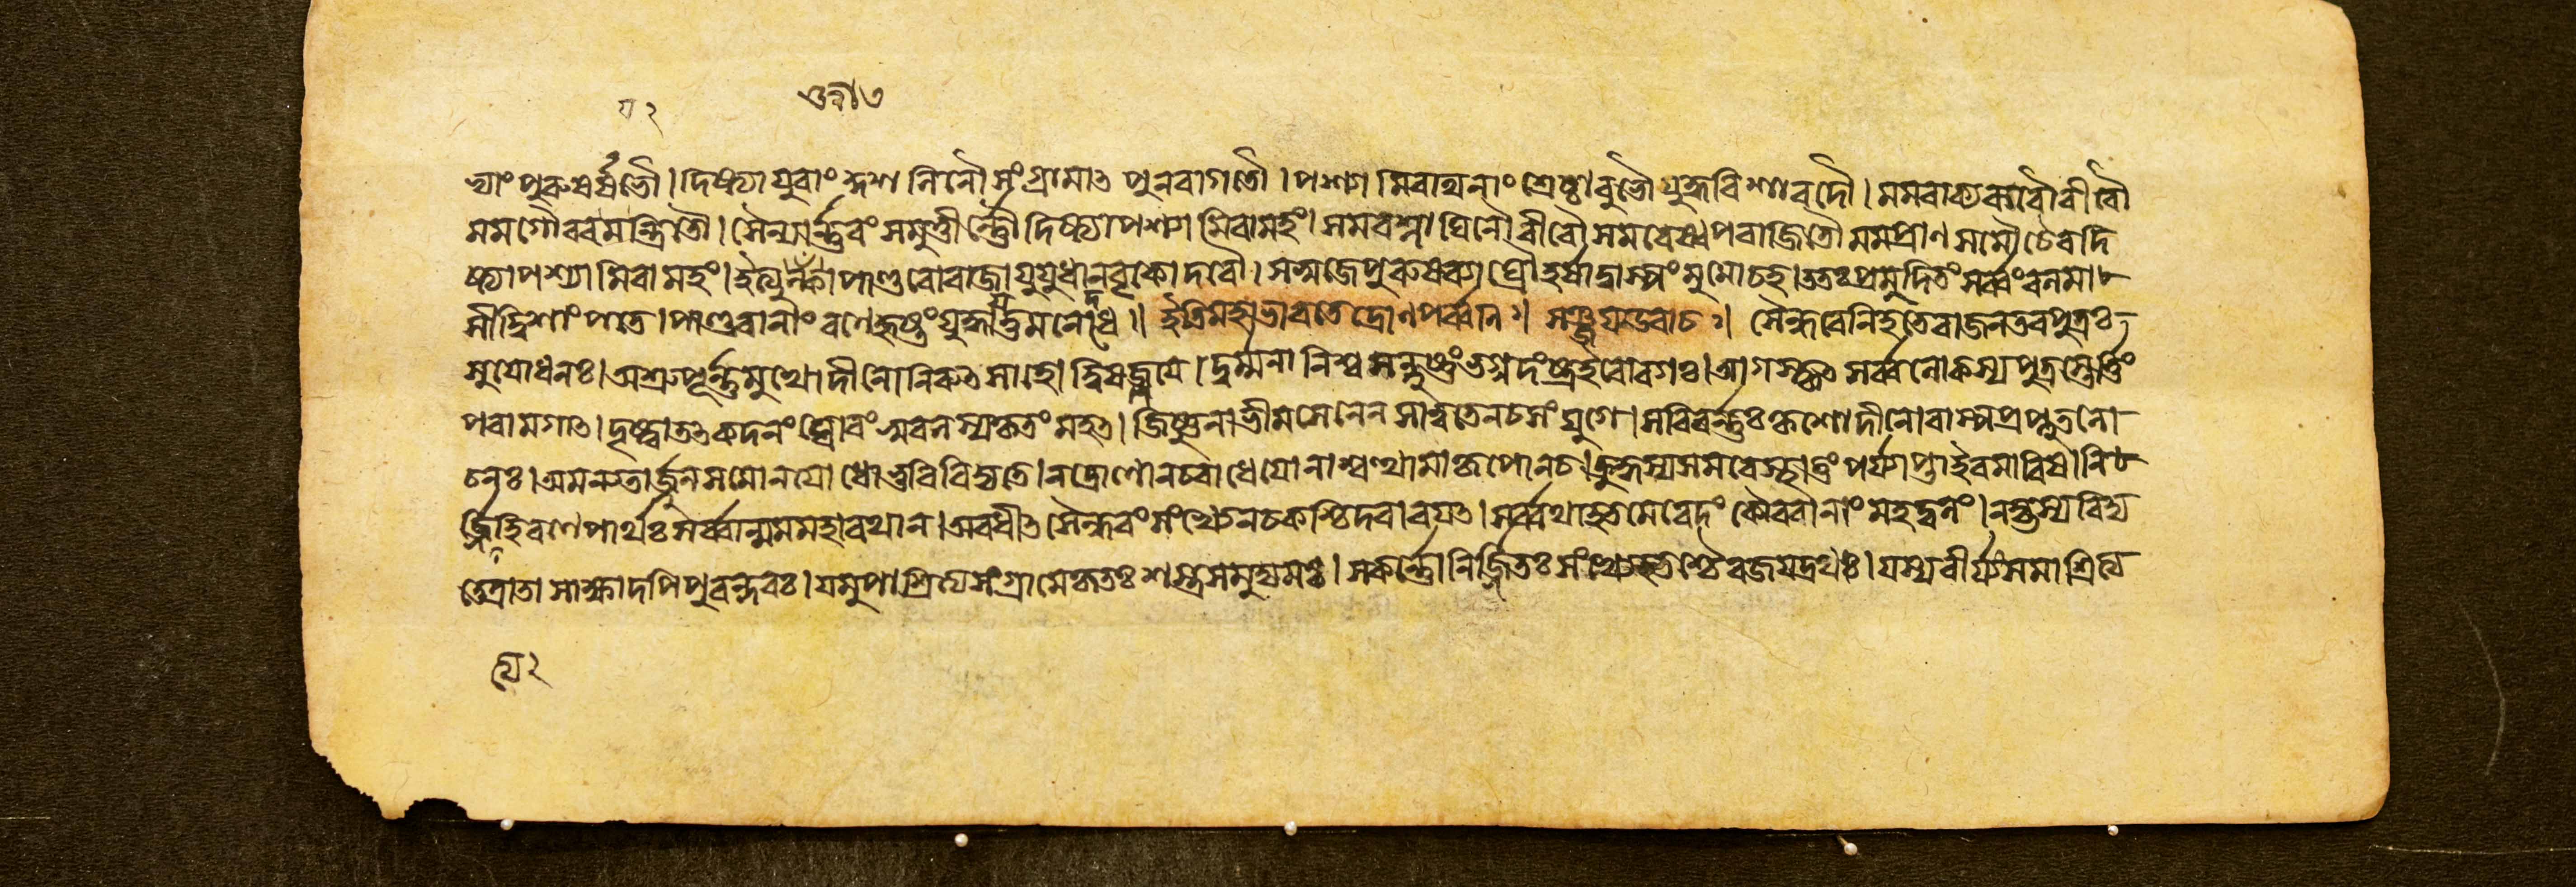 ভ্যাং পুরুষর্ষভৌ। দিষ্ট্যা যুবাং কুশলিনৌ সংগ্রামাৎ পুনরাগতৌ। পশ্যামি রথিনাং শ্রেষ্ঠাবুভৌ যুদ্ধবিশারদৌ। মমবাক্যকরৌ বীরৌ
মমগৌরবমন্ত্রিতৌ। সৈন্যার্ণ্ণবং সমুত্তীর্ণ্ণৌ দিষ্ট্যা পশ্যামি বামহং। সমরশ্লাঘিনৌ বীরৌ সমরেষ্বপরাজিতৌ মমপ্রাণসমৌ চৈব দি
ষ্ট্যা পশ্যামি বামহং। ইত্যুক্ত্বা পাণ্ডবো রাজা যুযুধানবৃকোদরৌ। সস্বজে পুরুষব্যাঘ্রৌ হর্ষাদ্বাষ্পং মুমোচহ। ততঃ প্রমুদিতং সর্ব্বং বলমা
সীদ্বিশাং পতে। পাণ্ডবানাং রণে হৃষ্টং যুদ্ধায় তু মনোদধে॥ ইতি মহাভারতে দ্রোণপর্ব্বণি॥ সঞ্জয় উবাচ॥ সৈন্ধবে নিহতে রাজন তব পুত্রঃ
সুযোধনঃ। অশ্রুপূর্ণ্ণমুখো দীনো নিরুৎসাহো দ্বিষজ্জয়ে। দুর্ম্মনা নিশ্বসন্দুষ্টং ভগ্নদংষ্ট্র ইবোরগঃ। আগস্কৃৎ সর্ব্বলোকস্য পুত্রস্তেৰ্ত্তিং
পরামগাৎ। দৃষ্ট্বা তৎ কদনং ঘোরং স্ববলস্য কৃতং মহৎ। জিষ্ণুনা ভীমসেনেন সাত্বতেন চ সংযুগে। স বিবর্ণ্ণঃ কৃশো দীনো বাষ্পপ্রপ্লুতলো
চনঃ। অমন্যতার্জ্জুনসমো ন যোধো ভুবি বিদ্যতে। ন দ্রোণো ন চ রাধেয়ো নাশ্বত্থামা কৃপো ন চ। ক্রুদ্ধস্য সমরে স্থাতুং পর্যাপ্তা ইব মারিষ। নি
র্জ্জিত্য হি রণে পার্থঃ সর্ব্বান্মম মহারথান। অবধীৎ সৈন্ধবং সংখ্যে ন চ কশ্চিদবারয়ৎ। সর্ব্বথা হতমেবেদং কৌরবানাং মহদ্বলং। ন হ্যস্য বিদ্য
তে ত্রাতা সাক্ষাদপি পুরন্দরঃ। যমুপাশ্রিত্য সংগ্রামে কৃতঃ শস্ত্রসমুদ্যমঃ। স কর্ণ্ণো নির্জ্জিতঃ সংখ্যে হতশ্চৈব জয়দ্রথঃ। যস্য বীর্যং সমাশ্রিত্য